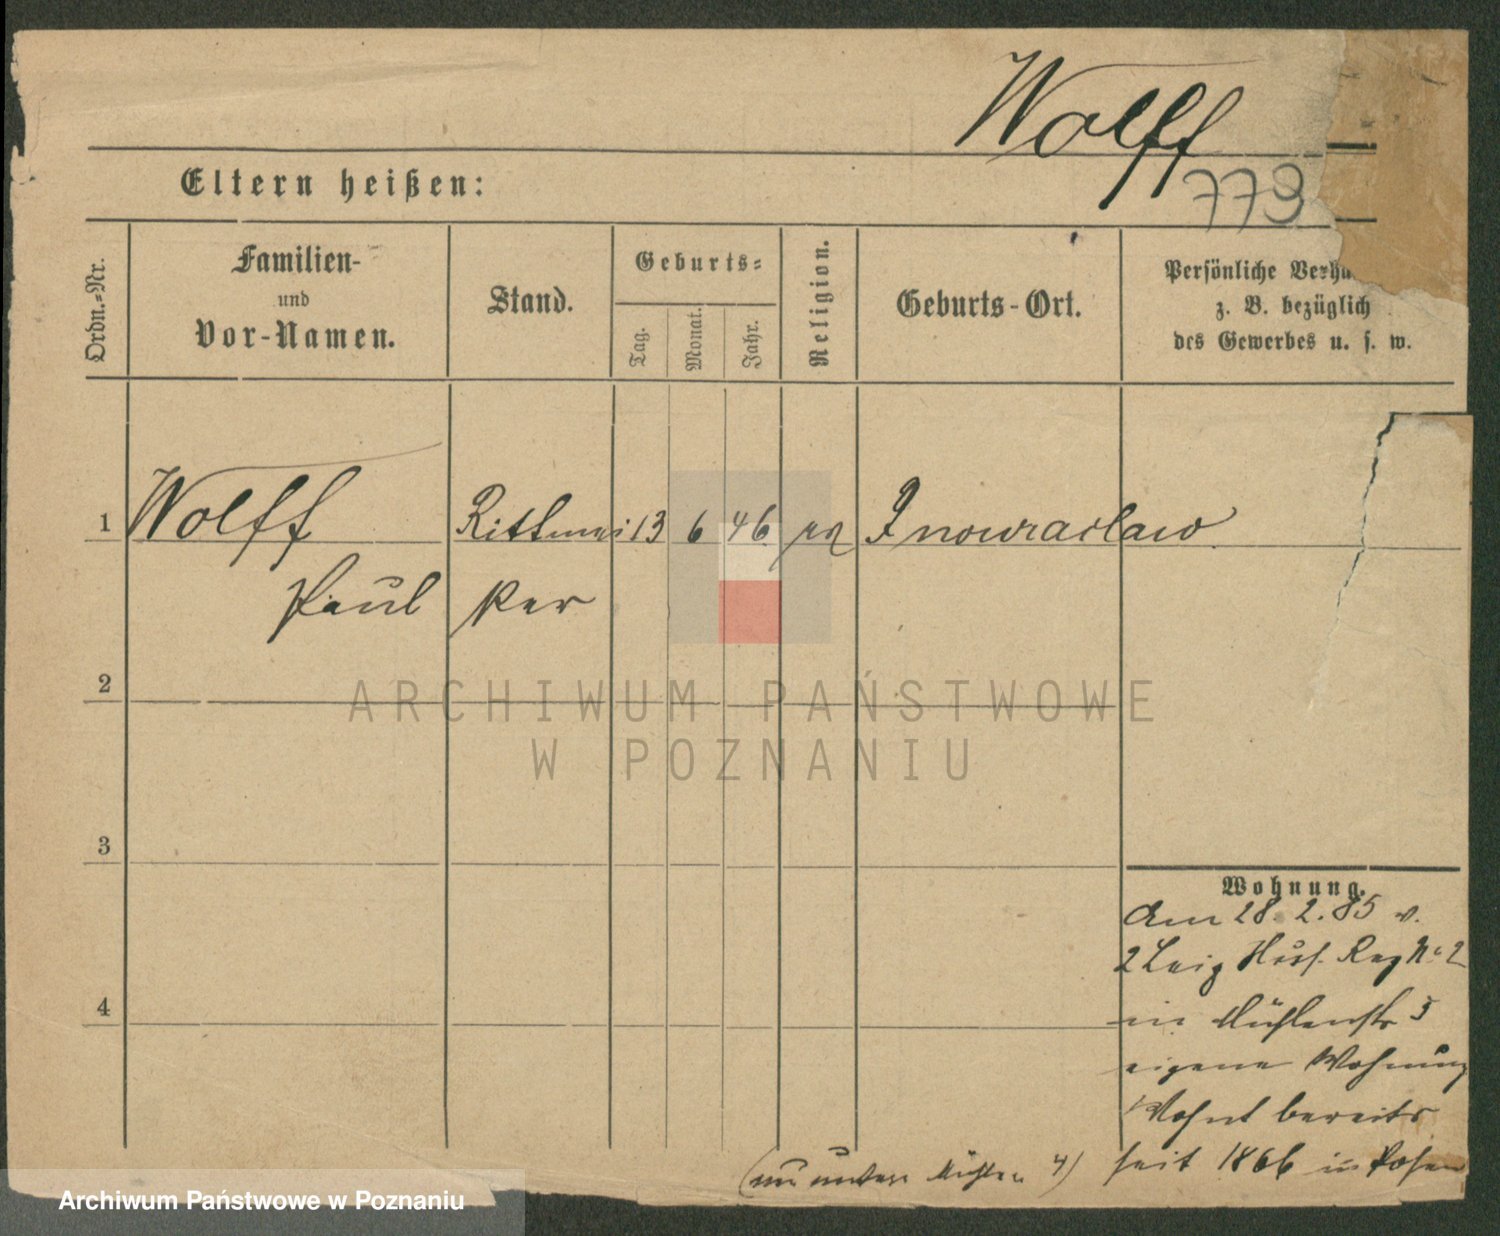 Wolff
779
Eltern heißen:
Ordn.-Nr.
Familien-
und
Vor-Namen.
Stand.
Geburts-
Tag.
Monat.
Jahr.
Religion.
Geburts-Ort.
Persönliche Verhä
z. B. bezüglich
des Gewerbes u. s. w.
1 Wolff Rittmei 13 6 46 Inowraclaw
Paul ster
2
ARCHIWUM PAŃSTWOWE
W POZNANIU
3
4
Wohnung.
Am 28. 2. 85 v.
2 Leib Hus. Reg No 2
in Mühlenstr 5
eigene Wohnung
Wohnt bereits
seit 1866 in Posen
Archiwum Państwowe w Poznaniu